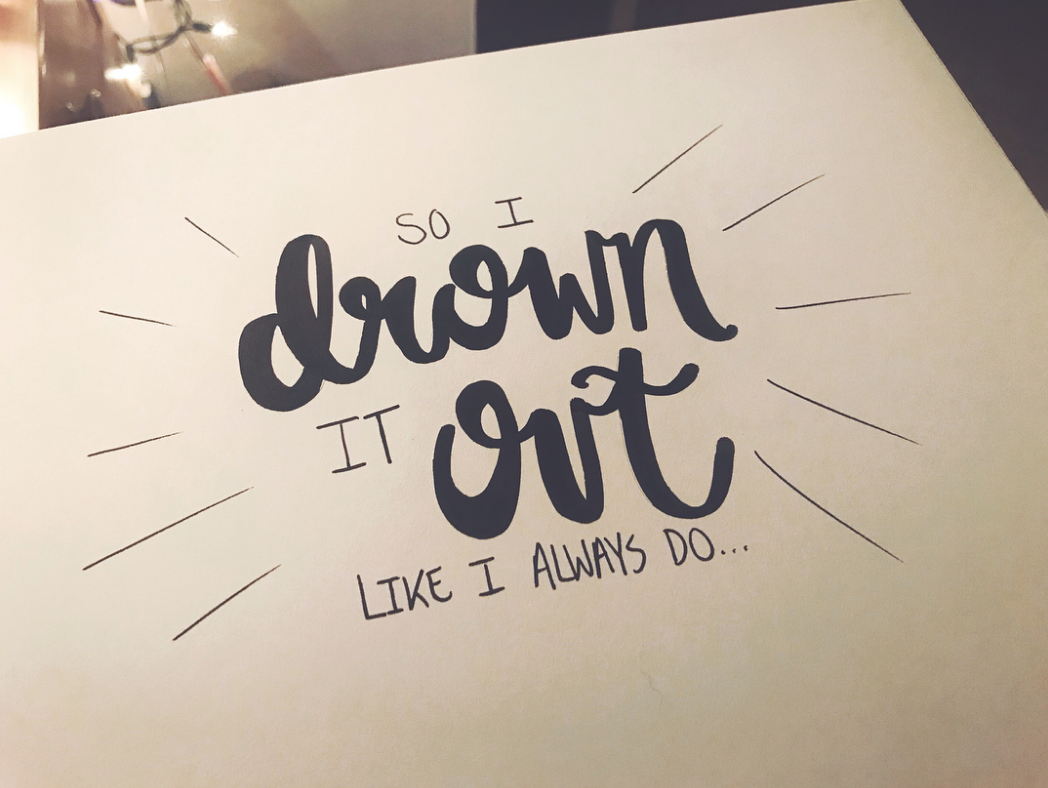 SO I
drown
IT out
LIKE I ALWAYS DO...